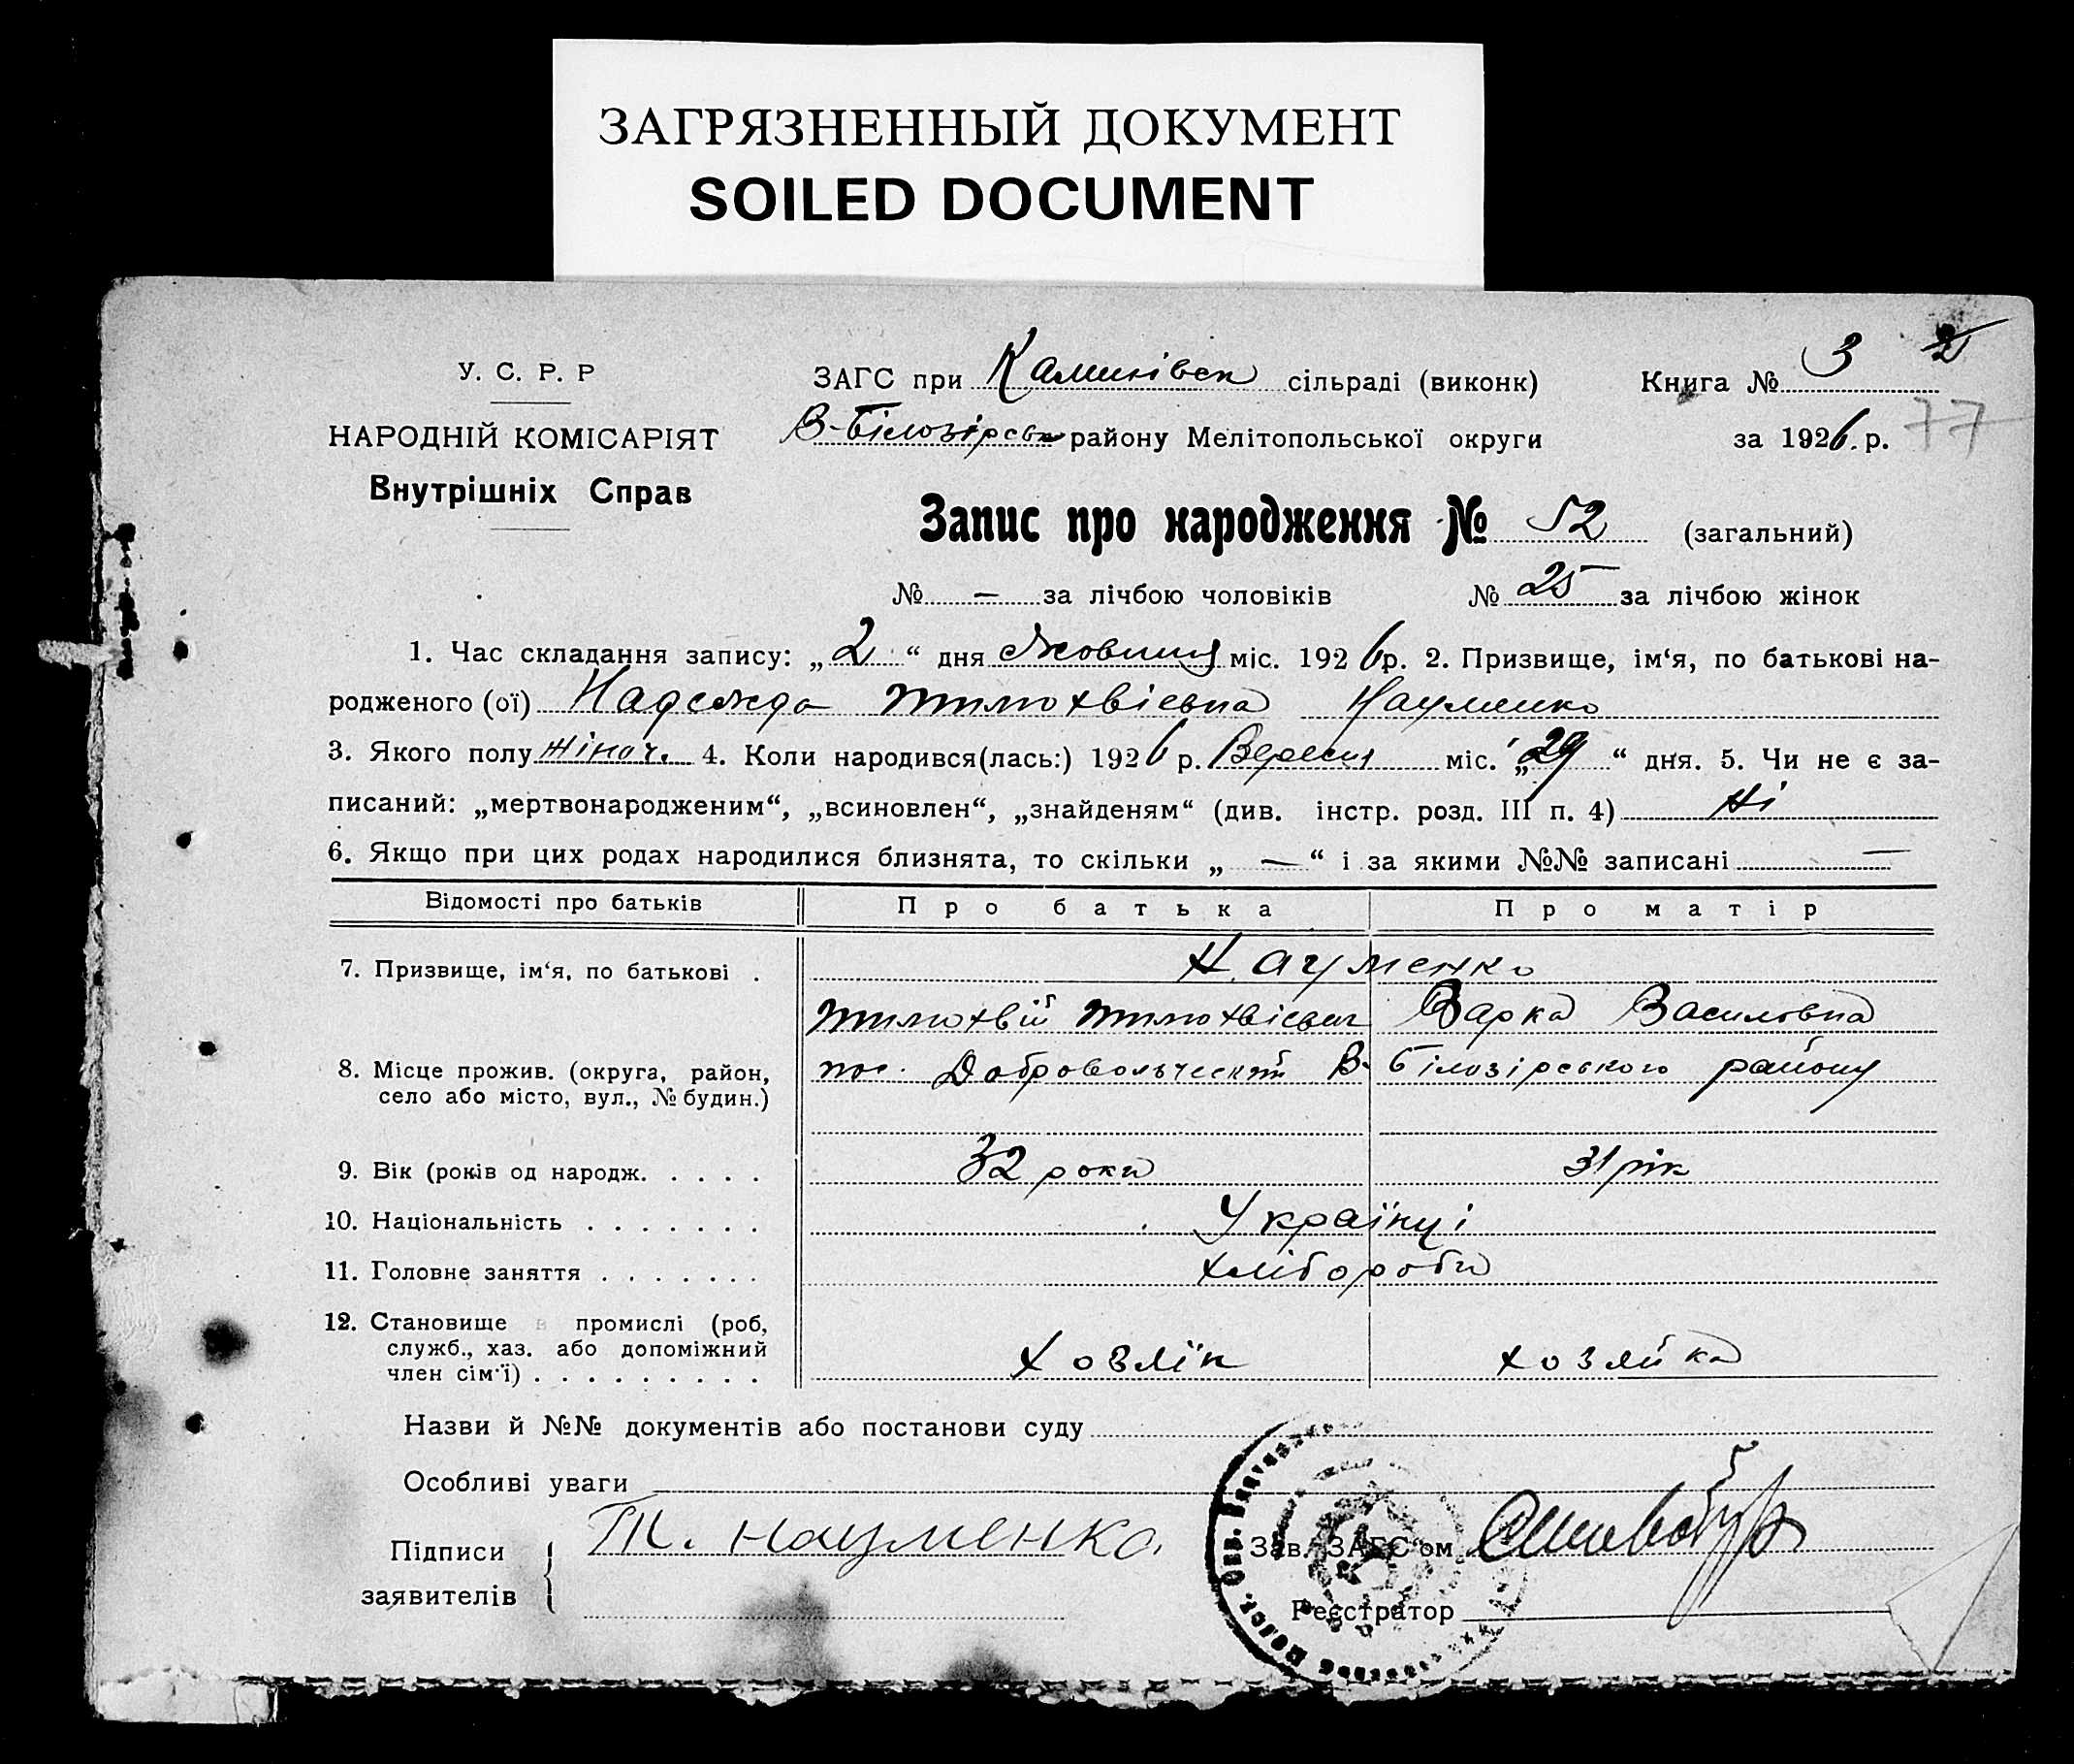 ЗАГРЯЗНЕННЫЙ ДОКУМЕНТ
SOILED DOCUMENT
У. С. Р. Р
ЗАГС при Каминівск сільраді (виконк) Книга № 3
НАРОДНІЙ КОМІСАРІЯТ В-Білозірськ району Мелітопольської округи за 1926. р. 77
Внутрішніх Справ
Запис про народження № 52 (загальний)
№ — за лічбою чоловіків № 25 за лічбою жінок
1. Час складання запису: „2“ дня Жовтня міс. 1926 р. 2. Призвище, ім‘я, по батькові на-
родженого (ої) Надежда Тимохвієвна Науменко
3. Якого полу жіноч. 4. Коли народився(лась:) 1926 р. Вересня міс. „29“ дня. 5. Чи не є за-
писаний: „мертвонародженим“, „всиновлен“, „знайденям“ (див. інстр. розд. III п. 4) Ні
6. Якщо при цих родах народилися близнята, то скільки „ — “ і за якими №№ записані —
Відомості про батьків Про батька Про матір
7. Призвище, ім‘я, по батькові . Науменко
Тимохвій Тимохвієвич Варка Василовна
8. Місце прожив. (округа, район, пос. Добровольческий В-Білозірського району
село або місто, вул., № будин.)
9. Вік (років од народж. . . . . 32 роки 31 рік
10. Національність . . . . . . . Українці
11. Головне заняття . . . . . . . хлібороби
12. Становище в промислі (роб,
служб., хаз. або допоміжний хозяїн хозяйка
член сім‘ї) . . . . . . . . .
Назви й №№ документів або постанови суду
Особливі уваги
Підписи Т. Науменко. Зав. ЗАГС‘ом
заявителів Реєстратор